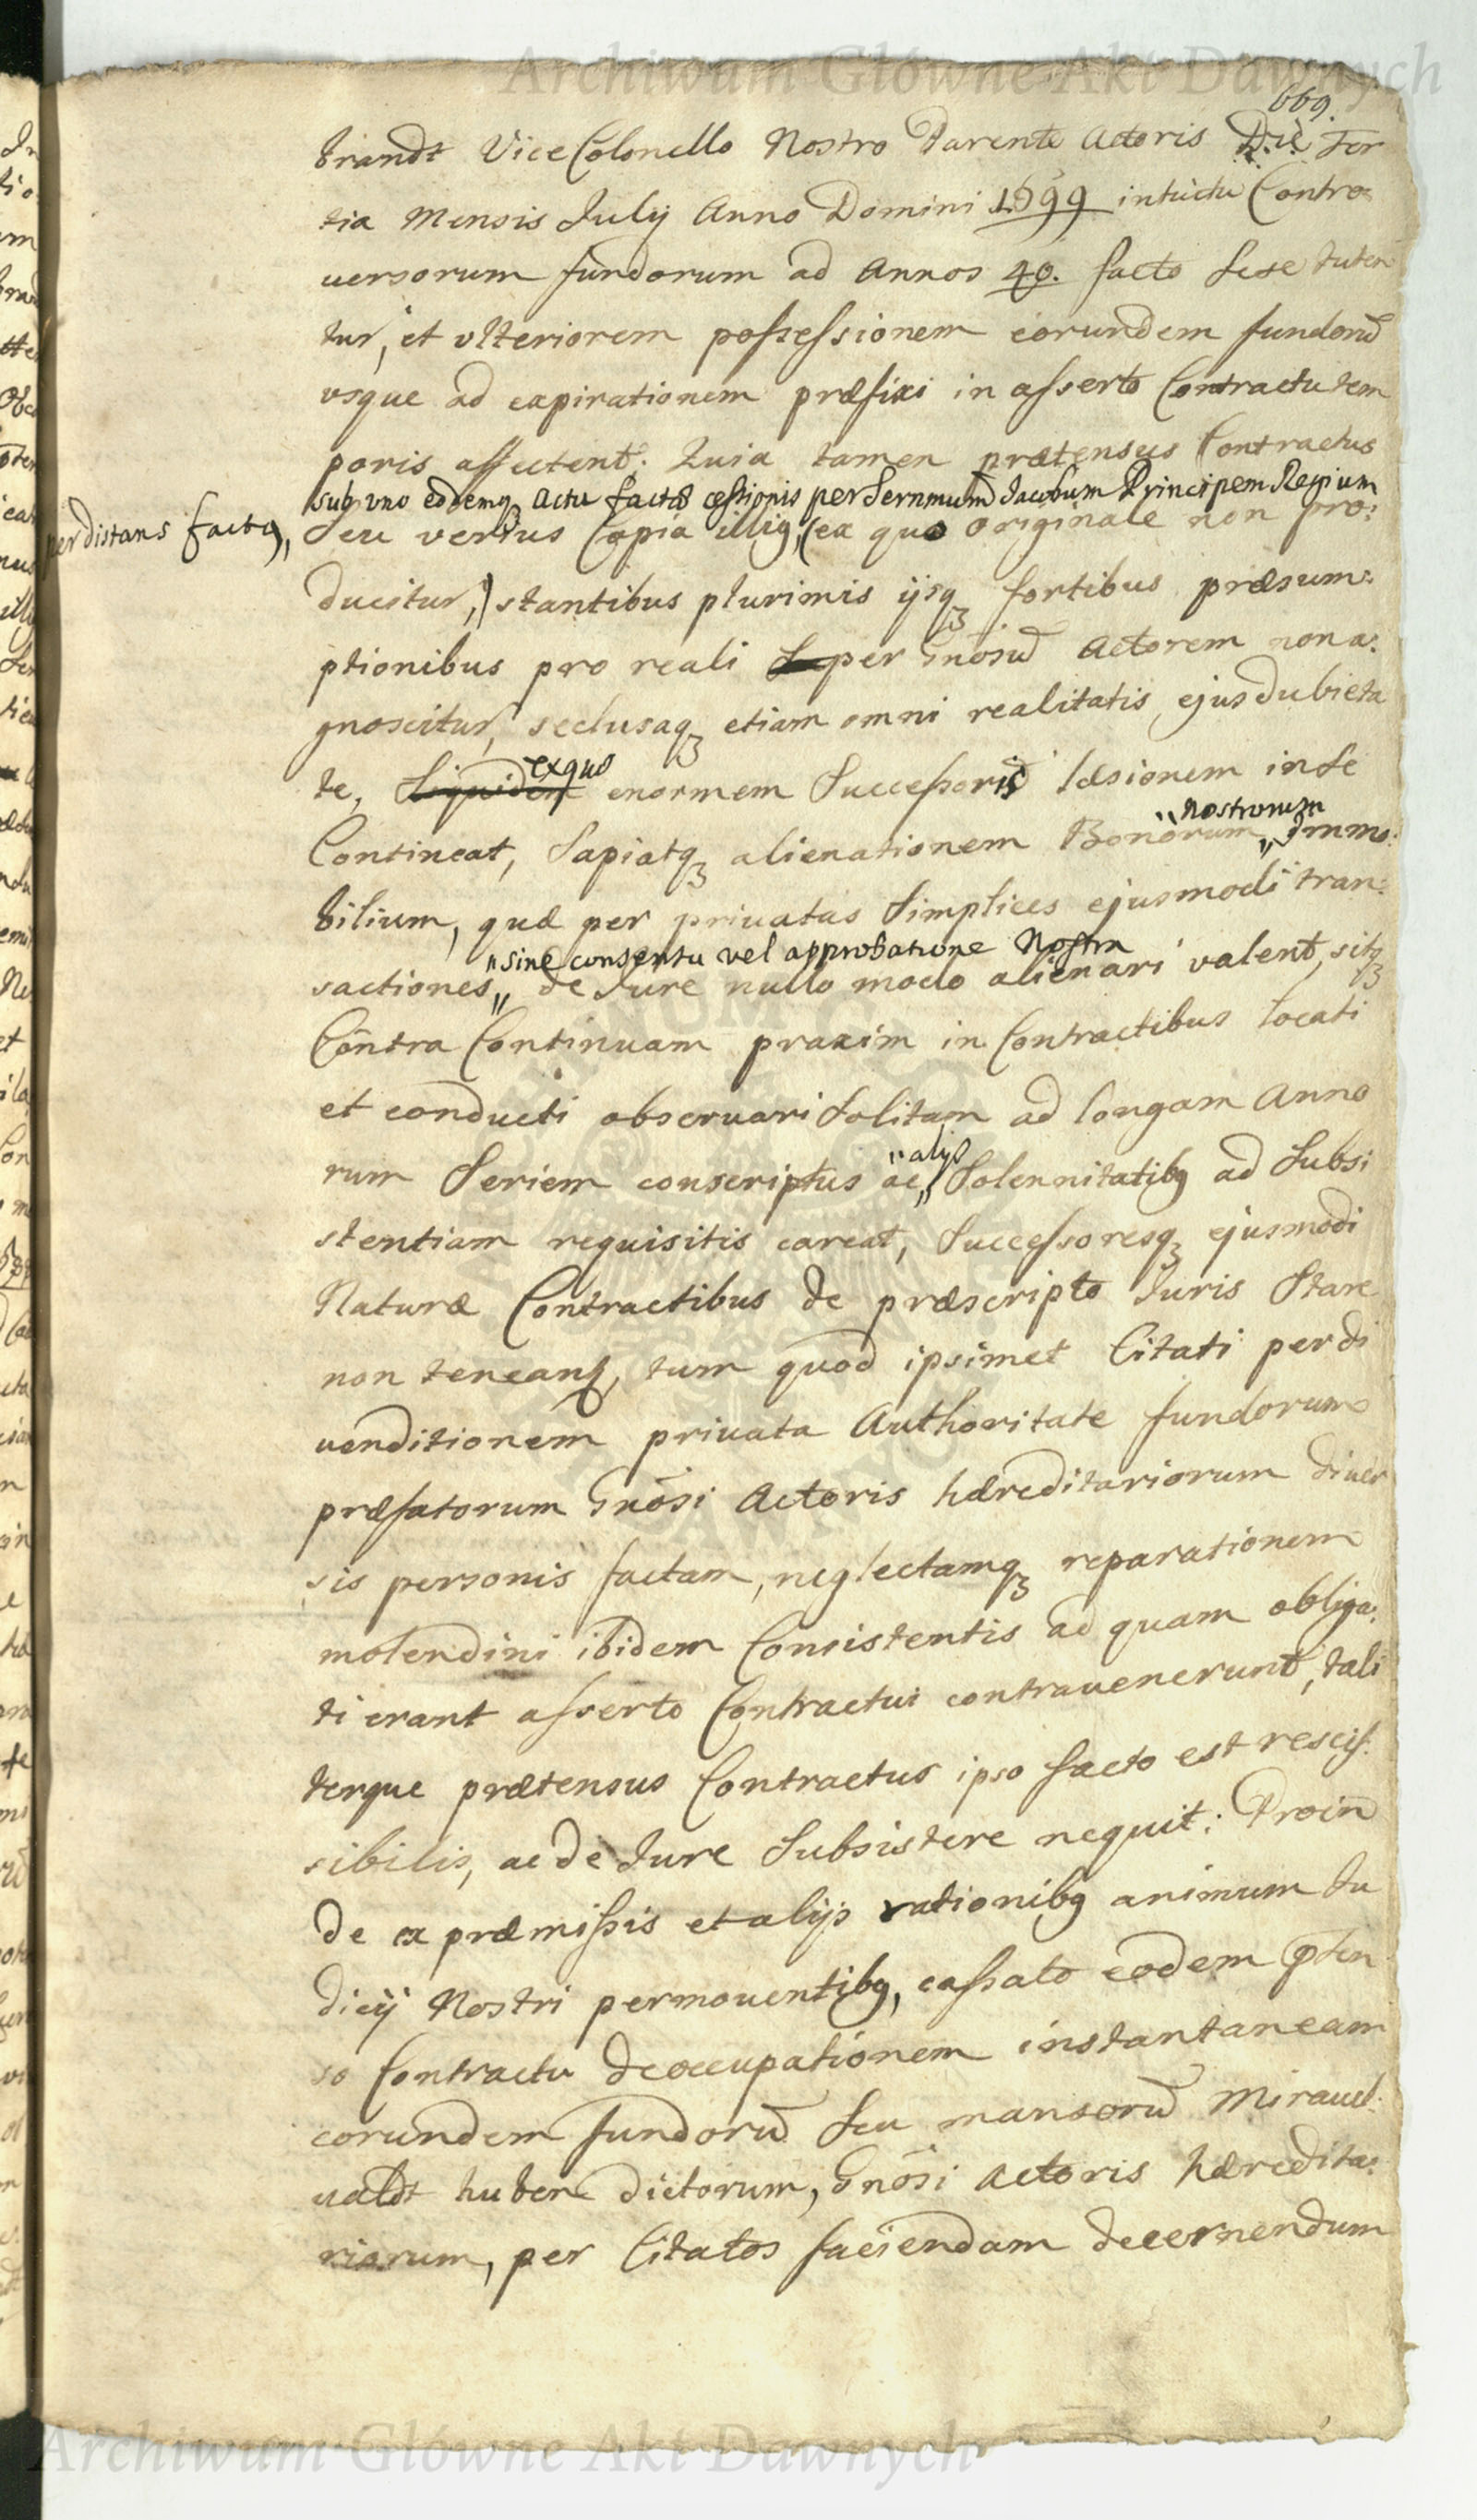 Archiwum Główne Akt Dawnych
669.
brandt ViceColonello Nostro Parente Actoris Die Ter
tia Mensis July Anno Domini 1699 intuitu Contro
uersorum fundorum ad Annos 40. facto sese tuten
tur, et vlteriorem possessionem eorundem fundorū
vsque ad expirationem præfixi in asserto Contractu tem
poris affectent. Quia tamen prætensus Contractus
sub vno eodemq3 Actu factæ cessionis per Sernmum Jacobum Principem Regium
per distans factus,
Seu verius Copia illius, (ex quo originale non pro:
ducitur,) stantibus plurimis ijsq3 fortibus præsum:
ptionibus pro reali per Gnosū Actorem non a:
gnoscitur, seclusaq3 etiam omni realitatis ejus dubieta
exquo
te, Siquidem enormem Successoris læsionem in se
nostrorum
Contineat, Sapiatq3 alienationem Bonorum, Immo:
bilium, quæ per priuatas Simplices ejusmodi tran:
sine consensu vel approbatione Nostra
sactiones, de Jure nullo modo alienari valent, sitq3
Contra Continuam praxim in Contractibus locati
et conducti obseruari Solitam ad longam Anno
alijs
rum Seriem conscriptus ac Solennitatibq ad Subsi
stentiam requisitis careat, Successoresq3 ejusmodi
Naturæ Contractibus de præscripto Juris Stare
non teneant, tum quod ipsimet Citati per di
uenditionem priuata Authoritate fundorum
præfatorum Gnosi Actoris hæreditariorum diuer
sis personis factam, neglectamq3 reparationem
molendini ibidem Consistentis ad quam obliga:
ti erant asserto Contractui contrauenerunt, tali
terque prætensus Contractus ipso facto est rescis:
sibilis, ac de Jure Subsistere nequit; Proin
de ex præmissis et alijs rationibq animum Ju
dicij Nostri permouentibq, cassato eodem pten
so Contractu deoccupationem instantaneam
eorundem fundorū Seu mansorū Mirauel:
ualdt huben dictorum, Gnosi Actoris hæredita:
riorum, per Citatos faciendam decernendum
Archiwum Główne Akt Dawnych